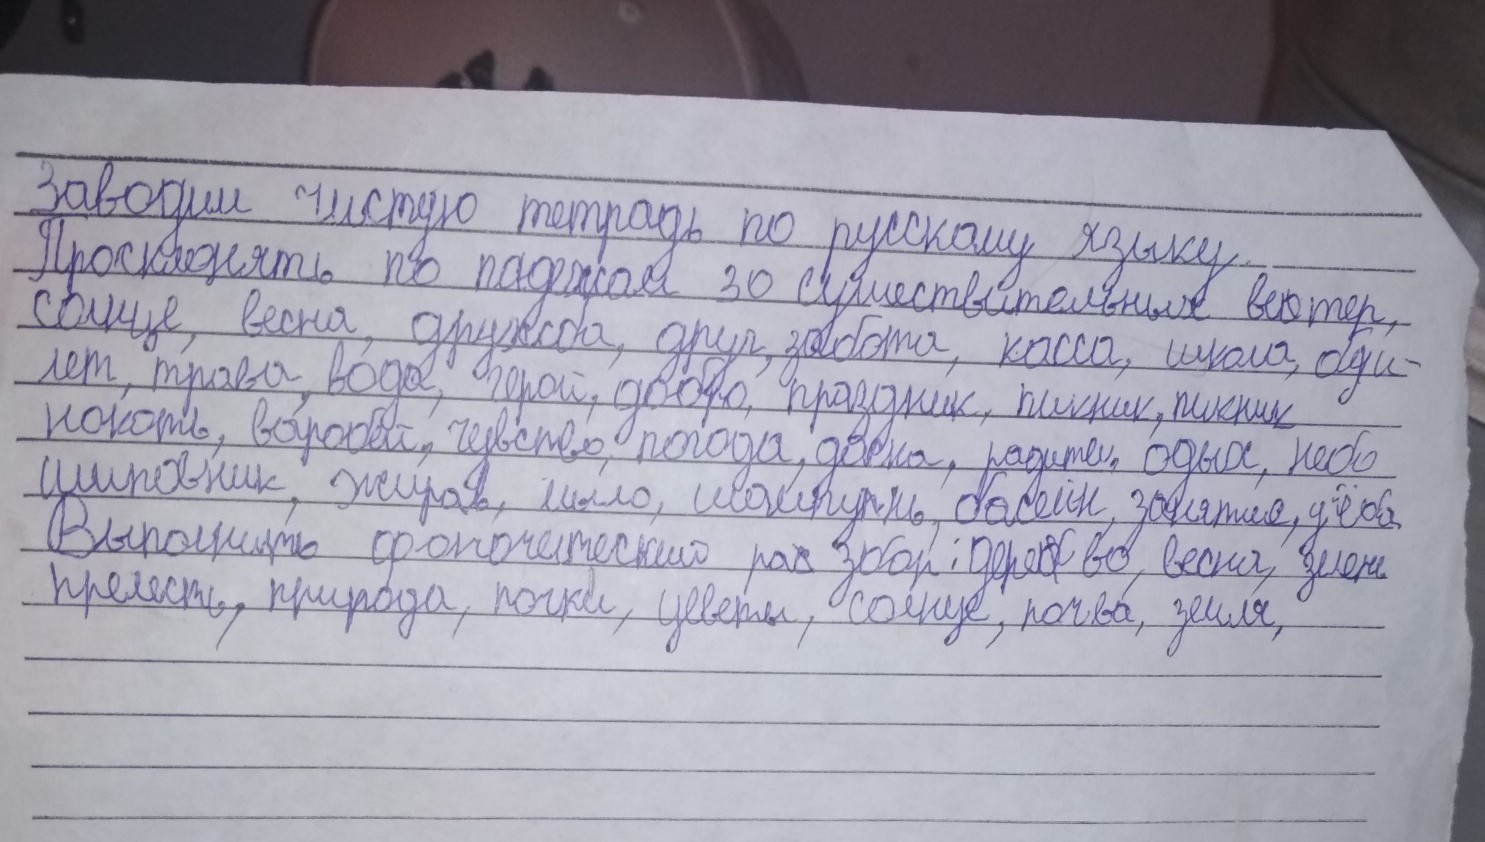 Заводим чистую тетрадь по русскому языку.
Просклонять по падежам 30 существительных ветер,
солнце, весна, дружба, друг, забота, касса, школа, оди-
лет, трава, вода, герой, добро, праздник, пикник, пикник
нокоть, воробей, чувство, погода, доска, радител, одых, небо
шиповник, жираф, шило, шампунь, басейн, занятие, учёба
Выполнить фонетический раз збор: дерево, весна, зилень
прелесть, природа, почки, цветы, солнце, почва, земля,